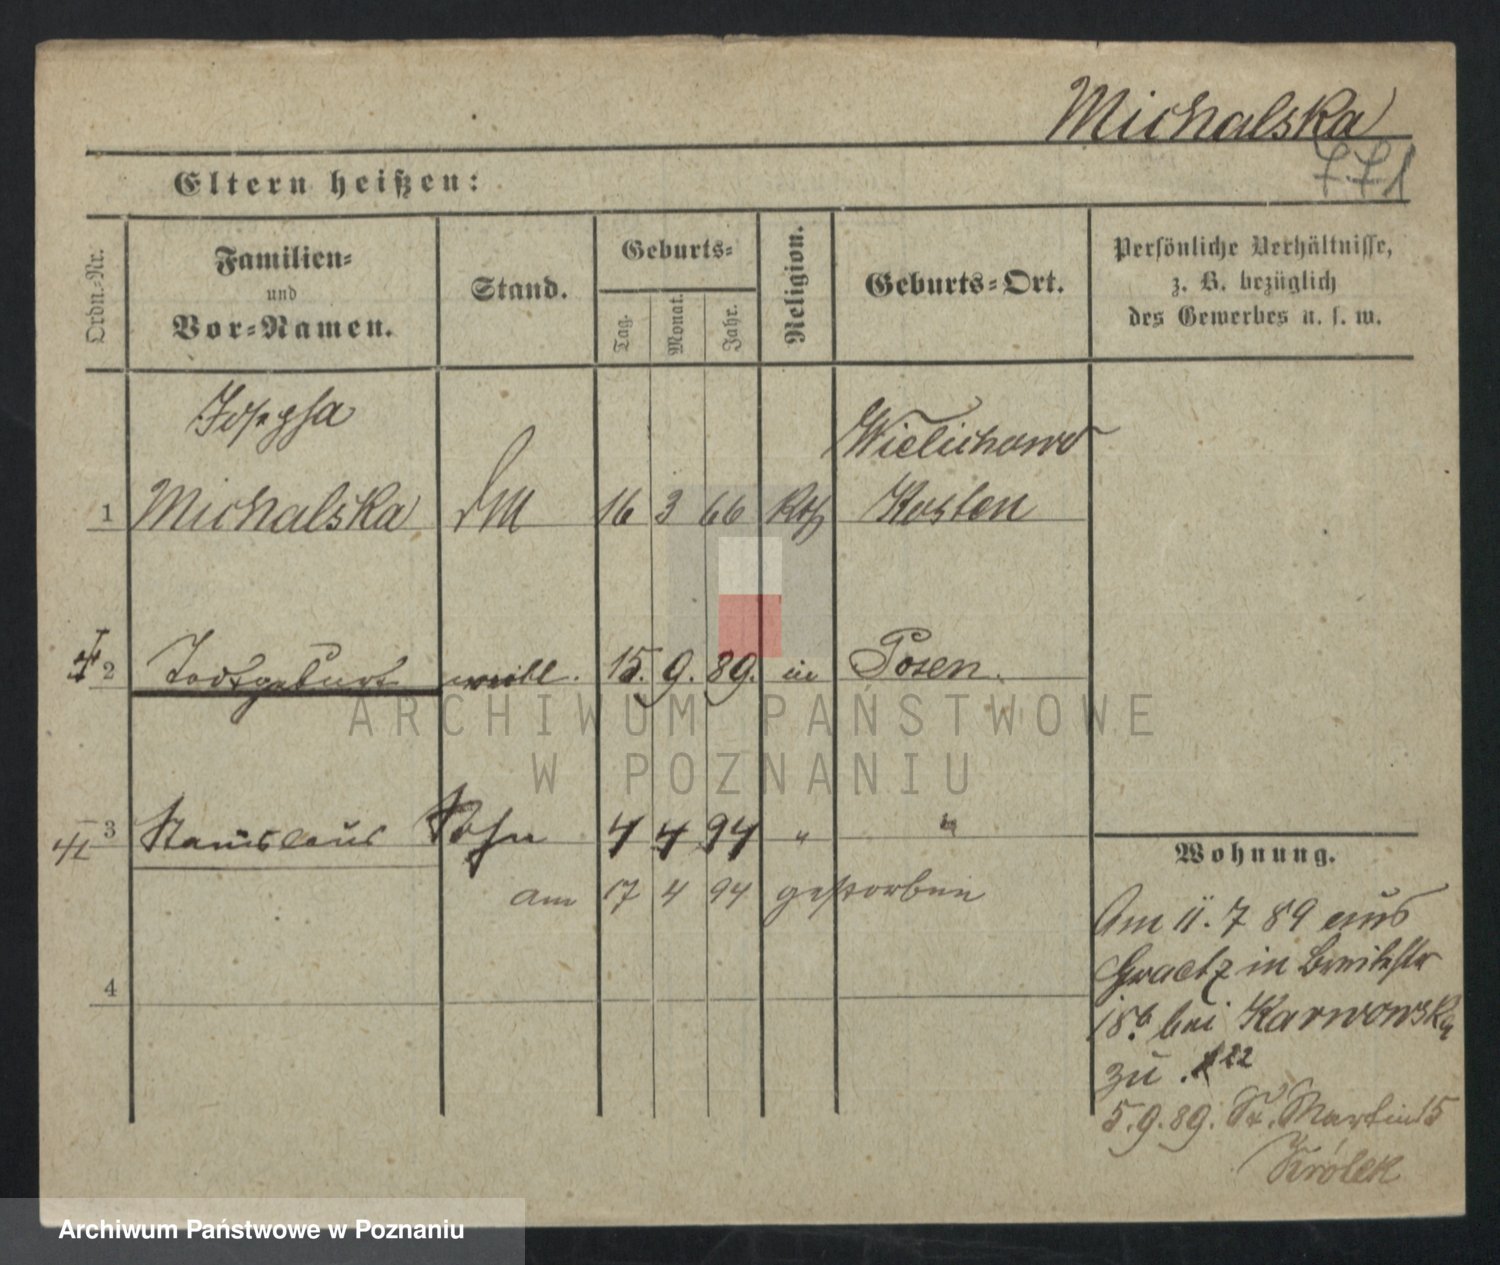 Michalska
771
Eltern heißen:
Ordn.-Nr.
Familien-
und
Vor-Namen.
Stand.
Geburts-
Tag.
Monat.
Jahr.
Religion.
Geburts-Ort.
Persönliche Verhältnisse,
z. B. bezüglich
des Gewerbes u. s. w.
Josepha Wielichowo
1 Michalska DM 16 3 66 Kth Kosten
2 Todtgeburt weibl. 15. 9. 89. in Posen.
ARCHIWUM PAŃSTWOWE
W POZNANIU
3 Stanislaus Sohn 4 4 94 " "
am 17 4 94 gestorben
4
Wohnung.
Am 11. 7 89 aus
Graetz in Breitestr
18b. bei Karwowska
zu. 22
5.9.89. St. Martin 15
Królek
Archiwum Państwowe w Poznaniu